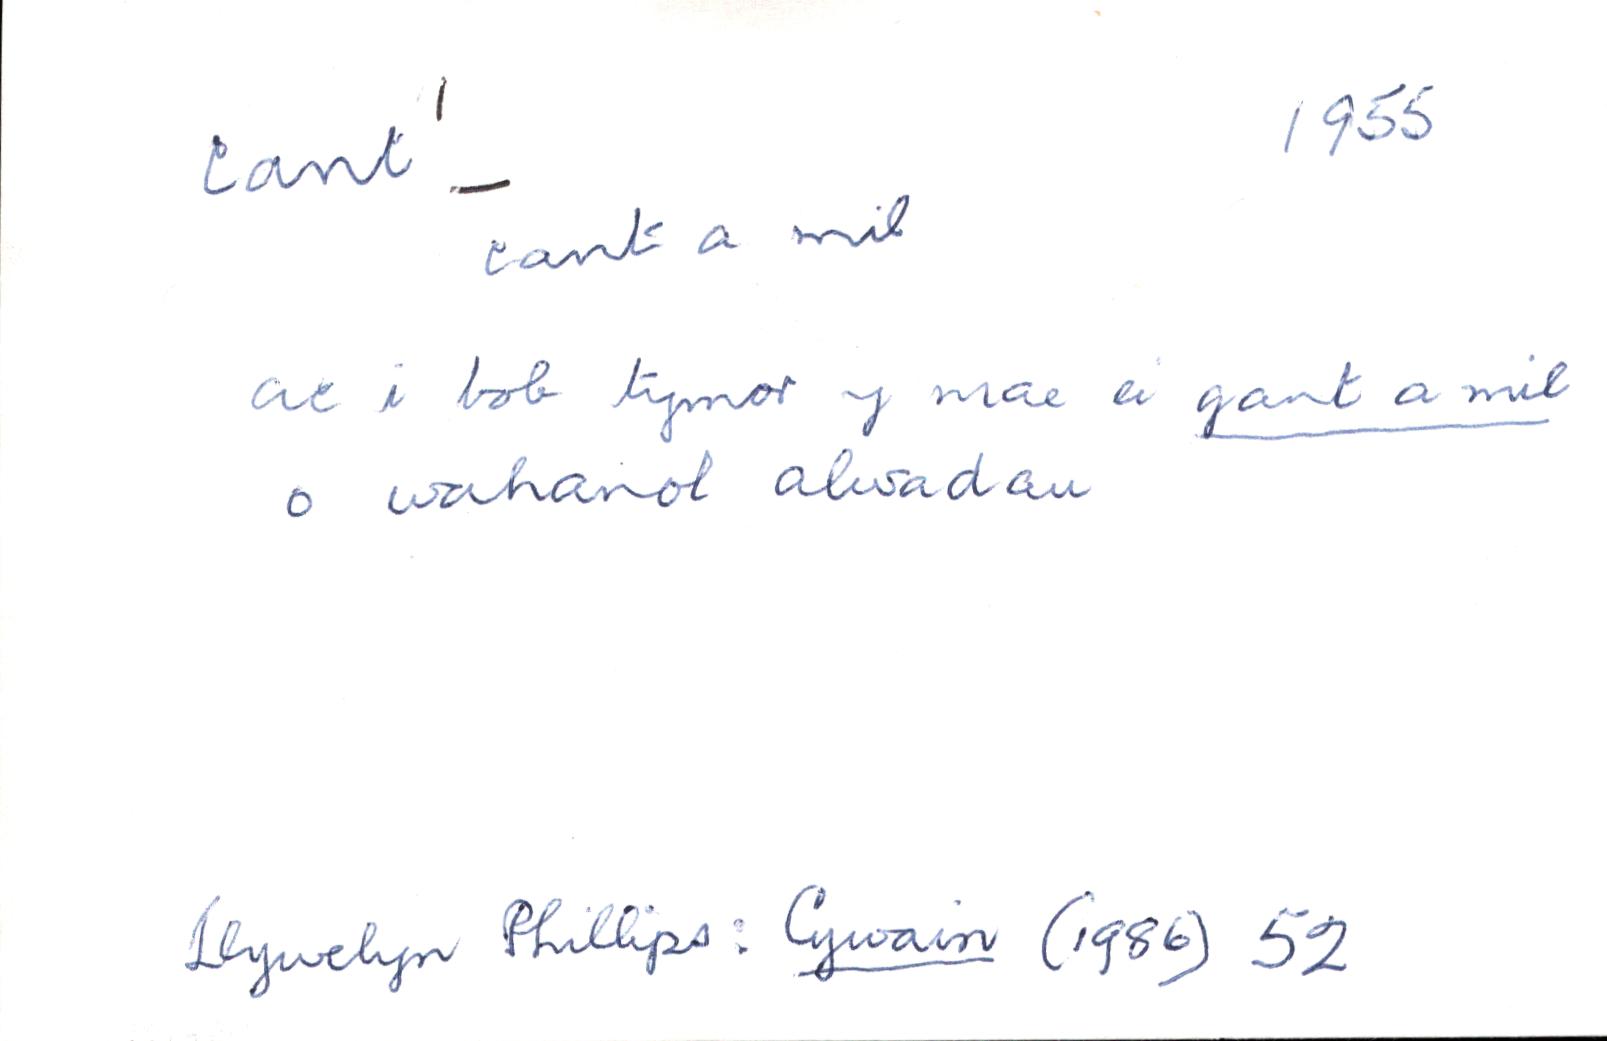 cant¹ – 1955
cant a mil
ac i bob tymor y mae ei gant a mil
o wahanol alwadau
Llywelyn Phillips: Cywain (1986) 52